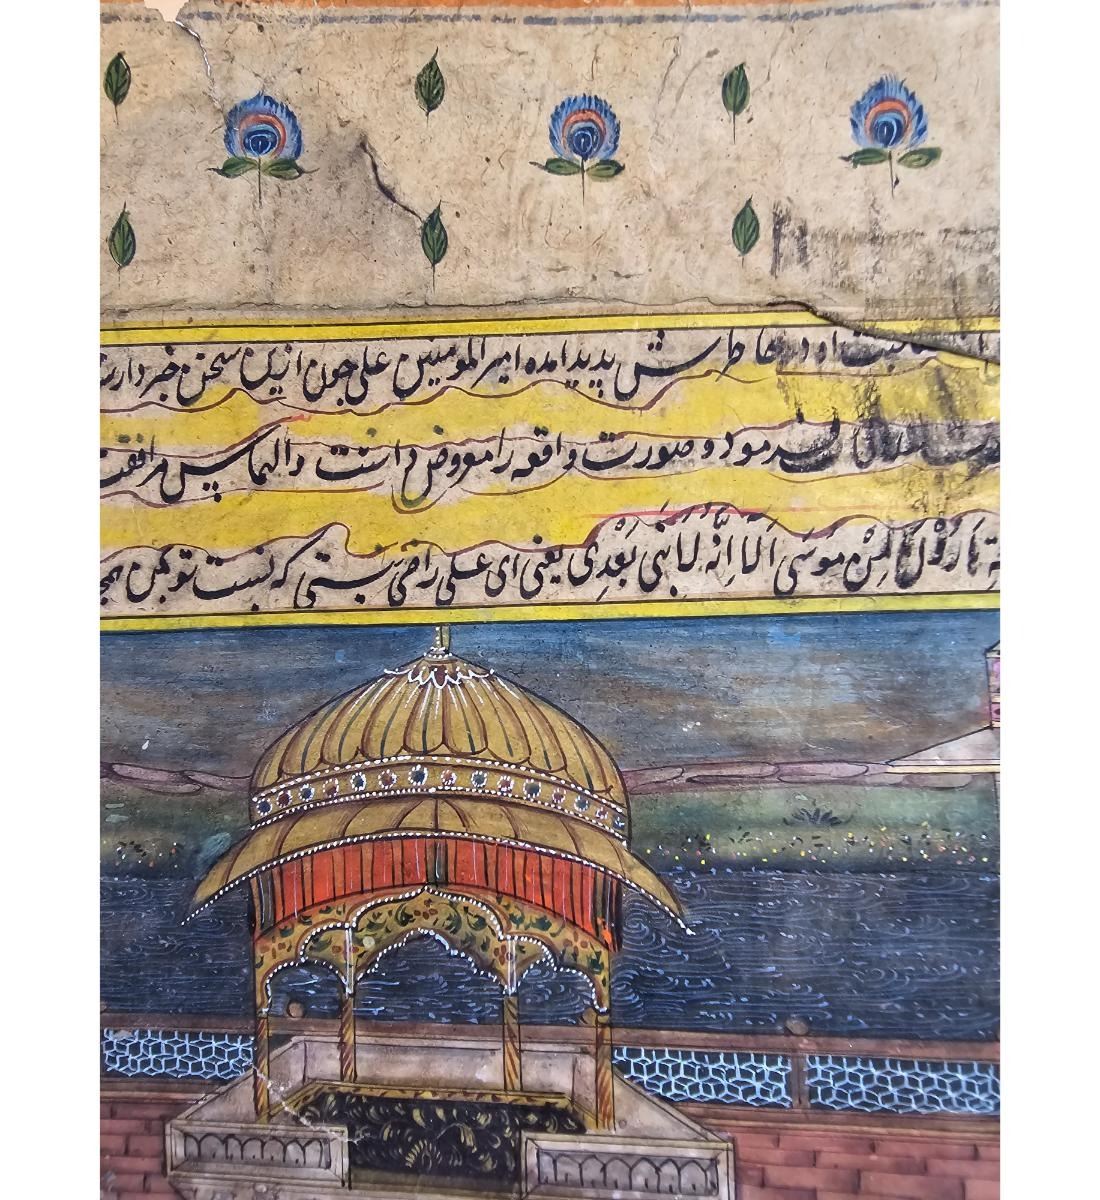 خاطرش پدید امده امیر المومنین علی چون ازین سخن خبردار
فرمود و صورت واقعه را معروض داشت و التماس مرافقت
هَارُوْنَ مِنْ مُوْسَى اَلَا اِنَّهُ لَا نَبِیَّ بَعْدِی یعنی ای علی راضی نیستی که نسبت تو بمن